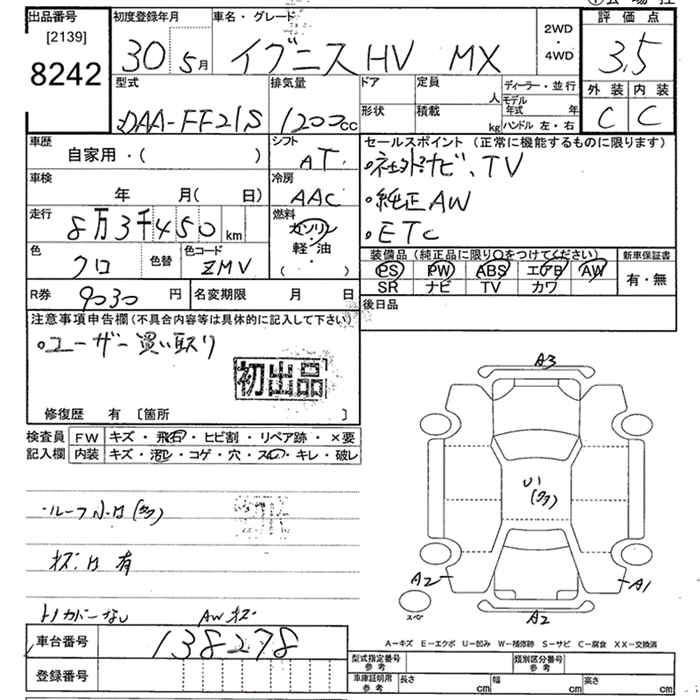 出品番号 初度登録年月 車名・グレード 評価点
[2139]
8242
30 5月 イグニス HV MX 2WD・4WD 3.5
型式 排気量 ドア 定員 人 ディーラー・並行 外装 内装
DAA-FF21S 1200cc 形状 積載 kg モデル年式 年 ハンドル 左・右 C C
車歴 自家用・( ) シフト AT セールスポイント(正常に機能するものに限ります)
・社外ナビ、TV
車検 年 月( 日) 冷房 AAC
・純正AW
走行 8万3千450km 燃料 ガソリン・軽・油 ( )
・ETC
色 クロ 色替 色コード ZMV
装備品(純正品に限り○をつけてください) 新車保証書
PS PW ABS エアB AW 有・無
SR ナビ TV カワ
R券 9030円 名変期限 月 日 後日品
注意事項申告欄(不具合内容等は具体的に記入して下さい)
・ユーザー買い取り
初出品
修復歴 有 [箇所 ]
検査員記入欄 FW キズ・飛石・ヒビ割・リペア跡・×要
内装 キズ・汚レ・コゲ・穴・スレ・キレ・破レ
・ルーフ小U(多)
キズ、U 有
トノカバーなし AWキズ
A3
U1
(多)
A2 A1
スペア A2
A−キズ E−エクボ U−凹み W−補修跡 S−サビ C−腐食 XX−交換済
車台番号 138278
登録番号
型式指定番号参考 類別区分番号参考
車庫証明用参考 長さ cm 幅 cm 高さ cm